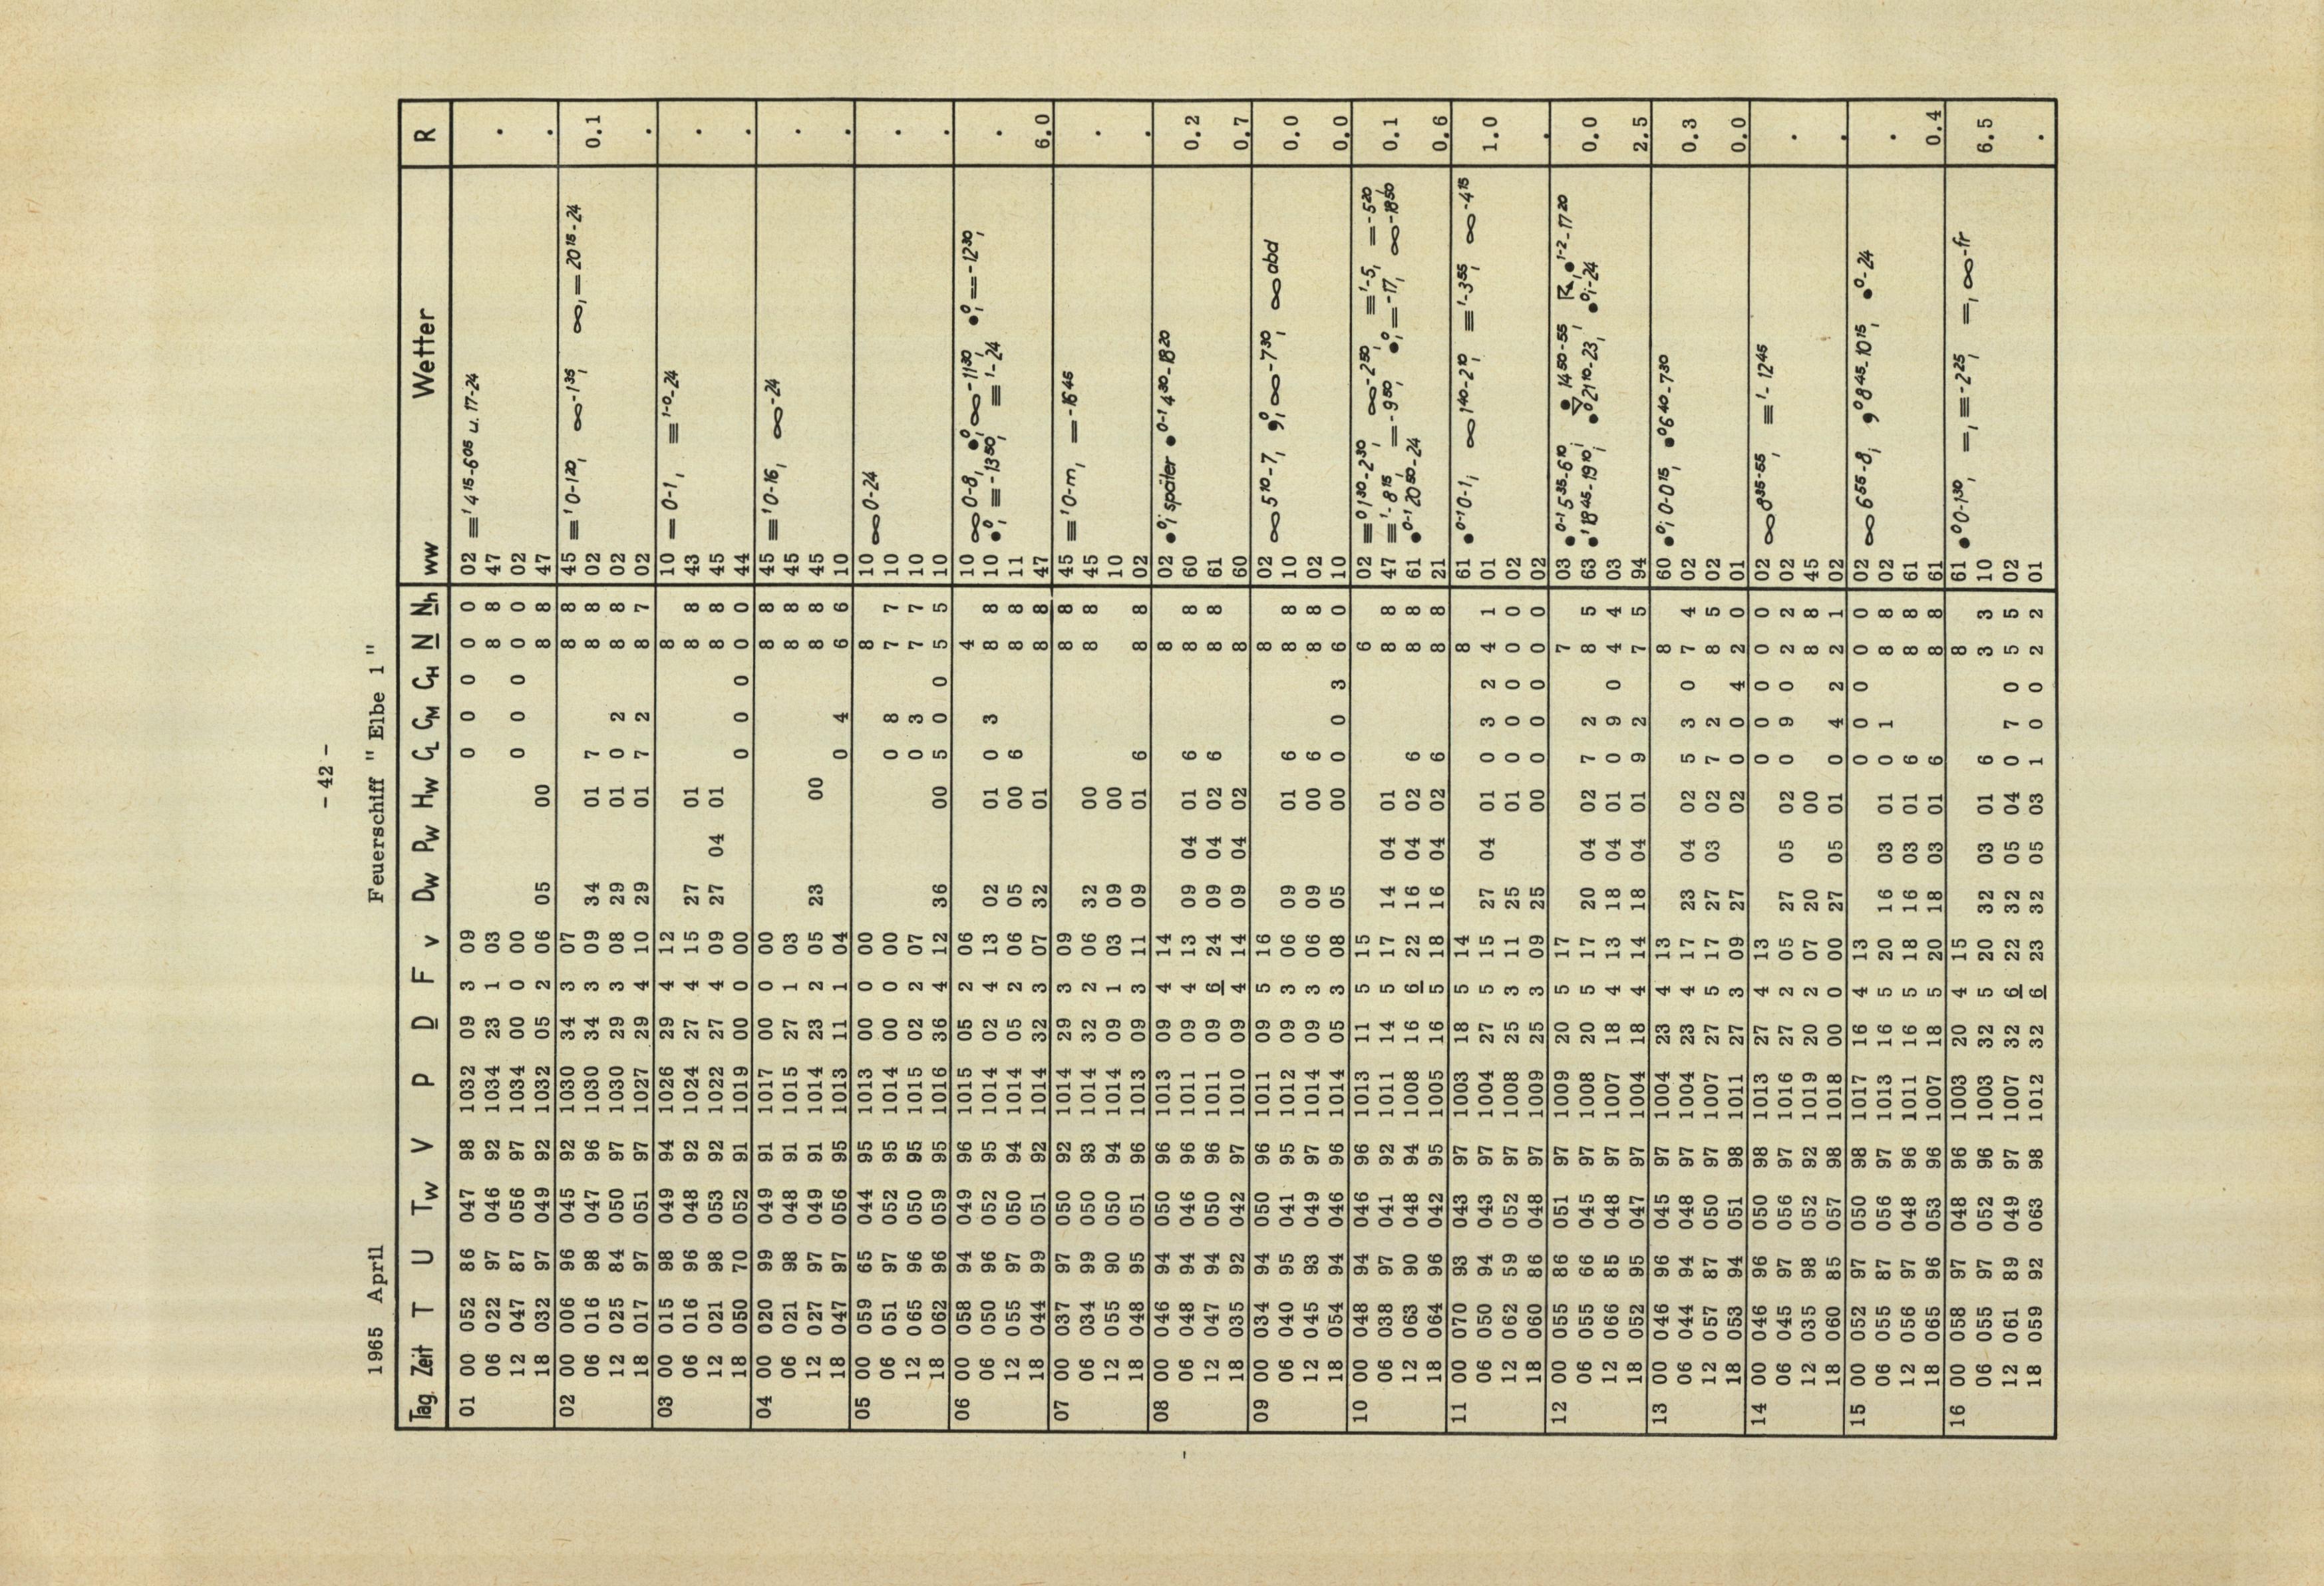 - 42 -
1965 April Feuerschiff " Elbe 1 "
Tag Zeit T U Tw V P D F v Dw Pw Hw CL CM CH N Nh ww Wetter R
01 00 052 86 047 98 1032 09 3 09 0 0 0 0 0 02 ≡¹ 4¹⁵-6⁰⁵ u. 17-24
06 022 97 046 92 1034 23 1 03 8 8 47 .
12 047 87 056 97 1034 00 0 00 0 0 0 0 0 02
18 032 97 049 92 1032 05 2 06 05 00 8 8 47 .
02 00 006 96 045 92 1030 34 3 07 8 8 45 ≡¹ 0-1²⁰, ∞-1³⁵, ∞,=20¹⁵-24
06 016 98 047 96 1030 34 3 09 34 01 7 8 8 02 0.1
12 025 84 050 97 1030 29 3 08 29 01 0 2 8 8 02
18 017 97 051 97 1027 29 4 10 29 01 7 2 8 7 02 .
03 00 015 98 049 94 1026 29 4 12 8 10 = 0-1, ≡¹⁻⁰-24
06 016 96 048 92 1024 27 4 15 27 01 8 8 43 .
12 021 98 053 92 1022 27 4 09 27 04 01 8 8 45
18 050 70 052 91 1019 00 0 00 0 0 0 0 0 44 .
04 00 020 99 049 91 1017 00 0 00 8 8 45 ≡¹ 0-16, ∞-24
06 021 98 048 91 1015 27 1 03 8 8 45 .
12 027 97 049 91 1014 23 2 05 23 00 8 8 45
18 047 97 056 95 1013 11 1 04 0 4 6 6 10 .
05 00 059 65 044 95 1013 00 0 00 8 10 ∞ 0-24
06 051 97 052 95 1014 00 0 00 0 8 7 7 10 .
12 065 96 050 95 1015 02 2 07 0 3 7 7 10
18 062 96 059 95 1016 36 4 12 36 00 5 0 0 5 5 10 .
06 00 058 94 049 96 1015 05 2 06 4 10 ∞ 0-8, •⁰, ∞-11³⁰, •⁰, =-12³⁰,
06 050 96 052 95 1014 02 4 13 02 01 0 3 8 8 10 •⁰, ≡-13⁵⁰, ≡¹-24 .
12 055 97 050 94 1014 05 2 06 05 00 6 8 8 11
18 044 99 051 92 1014 32 3 07 32 01 8 8 47 6.0
07 00 037 97 050 92 1014 29 3 09 8 8 45 ≡¹ 0-m, =-16⁴⁵
06 034 99 050 93 1014 32 2 06 32 00 8 8 45 .
12 055 90 050 94 1014 09 1 03 09 00 10
18 048 95 051 96 1013 09 3 11 09 01 6 8 8 02 .
08 00 046 94 050 96 1013 09 4 14 8 02 •⁰, später •⁰⁻¹ 4³⁰-18²⁰
06 048 94 046 96 1011 09 4 13 09 04 01 6 8 8 60 0.2
12 047 94 050 96 1011 09 6 24 09 04 02 6 8 8 61
18 035 92 042 97 1010 09 4 14 09 04 02 8 60 0.7
09 00 034 94 050 96 1011 09 5 16 8 02 ∞ 5¹⁰-7, ,⁰, ∞-7³⁰, ∞ abd
06 040 95 041 95 1012 09 3 06 09 01 6 8 8 10 0.0
12 045 93 049 97 1014 09 3 06 09 00 6 8 8 02
18 054 94 046 96 1014 05 3 08 05 00 0 0 3 6 0 10 0.0
10 00 048 94 046 96 1013 11 5 15 6 02 ≡⁰ 1³⁰-2³⁰, ∞-2⁵⁰, ≡¹-5, =-5²⁰
06 038 97 041 92 1011 14 5 17 14 04 01 8 8 47 ≡¹-8¹⁵, =-9⁵⁰, •⁰, =-17, ∞-18⁵⁰ 0.1
12 063 90 048 94 1008 16 6 22 16 04 02 6 8 8 61 •⁰⁻¹ 20⁵⁰-24
18 064 96 042 95 1005 16 5 18 16 04 02 6 8 8 21 0.6
11 00 070 93 043 97 1003 18 5 14 8 61 •⁰⁻¹ 0-1, ∞ 1⁴⁰-2¹⁰, ≡¹-3⁵⁵, ∞-4¹⁵
06 050 94 043 97 1004 27 5 15 27 04 01 0 3 2 4 1 01 1.0
12 062 59 052 97 1008 25 3 11 25 01 0 0 0 0 0 02
18 060 86 048 97 1009 25 3 09 25 00 0 0 0 0 0 02 .
12 00 055 86 051 97 1009 20 5 17 7 03 •⁰⁻¹ 5³⁵-6¹⁰ 14⁵⁰-55 •¹⁻²-17²⁰
06 055 66 045 97 1008 20 5 17 20 04 02 7 2 8 5 63 •¹ 18⁴⁵-19¹⁰, •⁰ 21¹⁰-23, •⁰,-24 0.0
12 066 85 048 97 1007 18 4 13 18 04 01 0 9 0 4 4 03
18 052 95 047 97 1004 18 4 14 18 04 01 9 2 7 5 94 2.5
13 00 046 96 045 97 1004 23 4 13 8 60 •⁰, 0-0¹⁵, •⁰ 6⁴⁰-7³⁰
06 044 94 048 97 1004 23 4 17 23 04 02 5 3 0 7 4 02 0.3
12 057 87 050 97 1007 27 5 17 27 03 02 7 2 8 5 02
18 053 94 051 98 1011 27 3 09 27 02 0 0 4 2 0 01 0.0
14 00 046 96 050 98 1013 27 4 13 0 0 0 0 0 02 ∞ 8³⁵-55, ≡¹-12⁴⁵
06 045 97 056 97 1016 27 2 05 27 05 02 0 9 0 2 2 02 .
12 035 98 052 92 1019 20 2 07 20 00 8 8 45
18 060 85 057 98 1018 00 0 00 27 05 01 0 4 2 2 1 02 .
15 00 052 97 050 98 1017 16 4 13 0 0 0 0 0 02 ∞ 6⁵⁵-8, ,⁰ 8⁴⁵-10¹⁵, •⁰-24
06 055 87 056 97 1013 16 5 20 16 03 01 0 1 8 8 02 .
12 056 97 048 96 1011 16 5 18 16 03 01 6 8 8 61
18 065 96 053 96 1007 18 5 20 18 03 01 6 8 8 61 0.4
16 00 058 97 048 96 1003 20 4 15 8 61 •⁰ 0-1³⁰, =, ≡-2²⁵, =, ∞-fr
06 055 97 052 96 1003 32 5 20 32 03 01 6 3 3 10 6.5
12 061 89 049 97 1007 32 6 22 32 05 04 0 7 0 5 5 02
18 059 92 063 98 1012 32 6 23 32 05 03 1 0 0 2 2 01 .